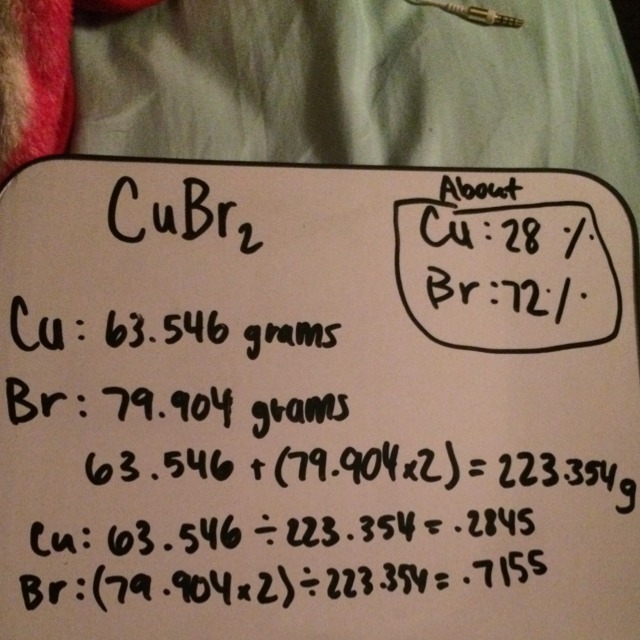 CuBr₂
About
Cu: 28 %
Br: 72 %
Cu: 63.546 grams
Br: 79.904 grams
63.546 + (79.904x2) = 223.354g
Cu: 63.546 ÷ 223.354 = .2845
Br: (79.904x2) ÷ 223.354 = .7155